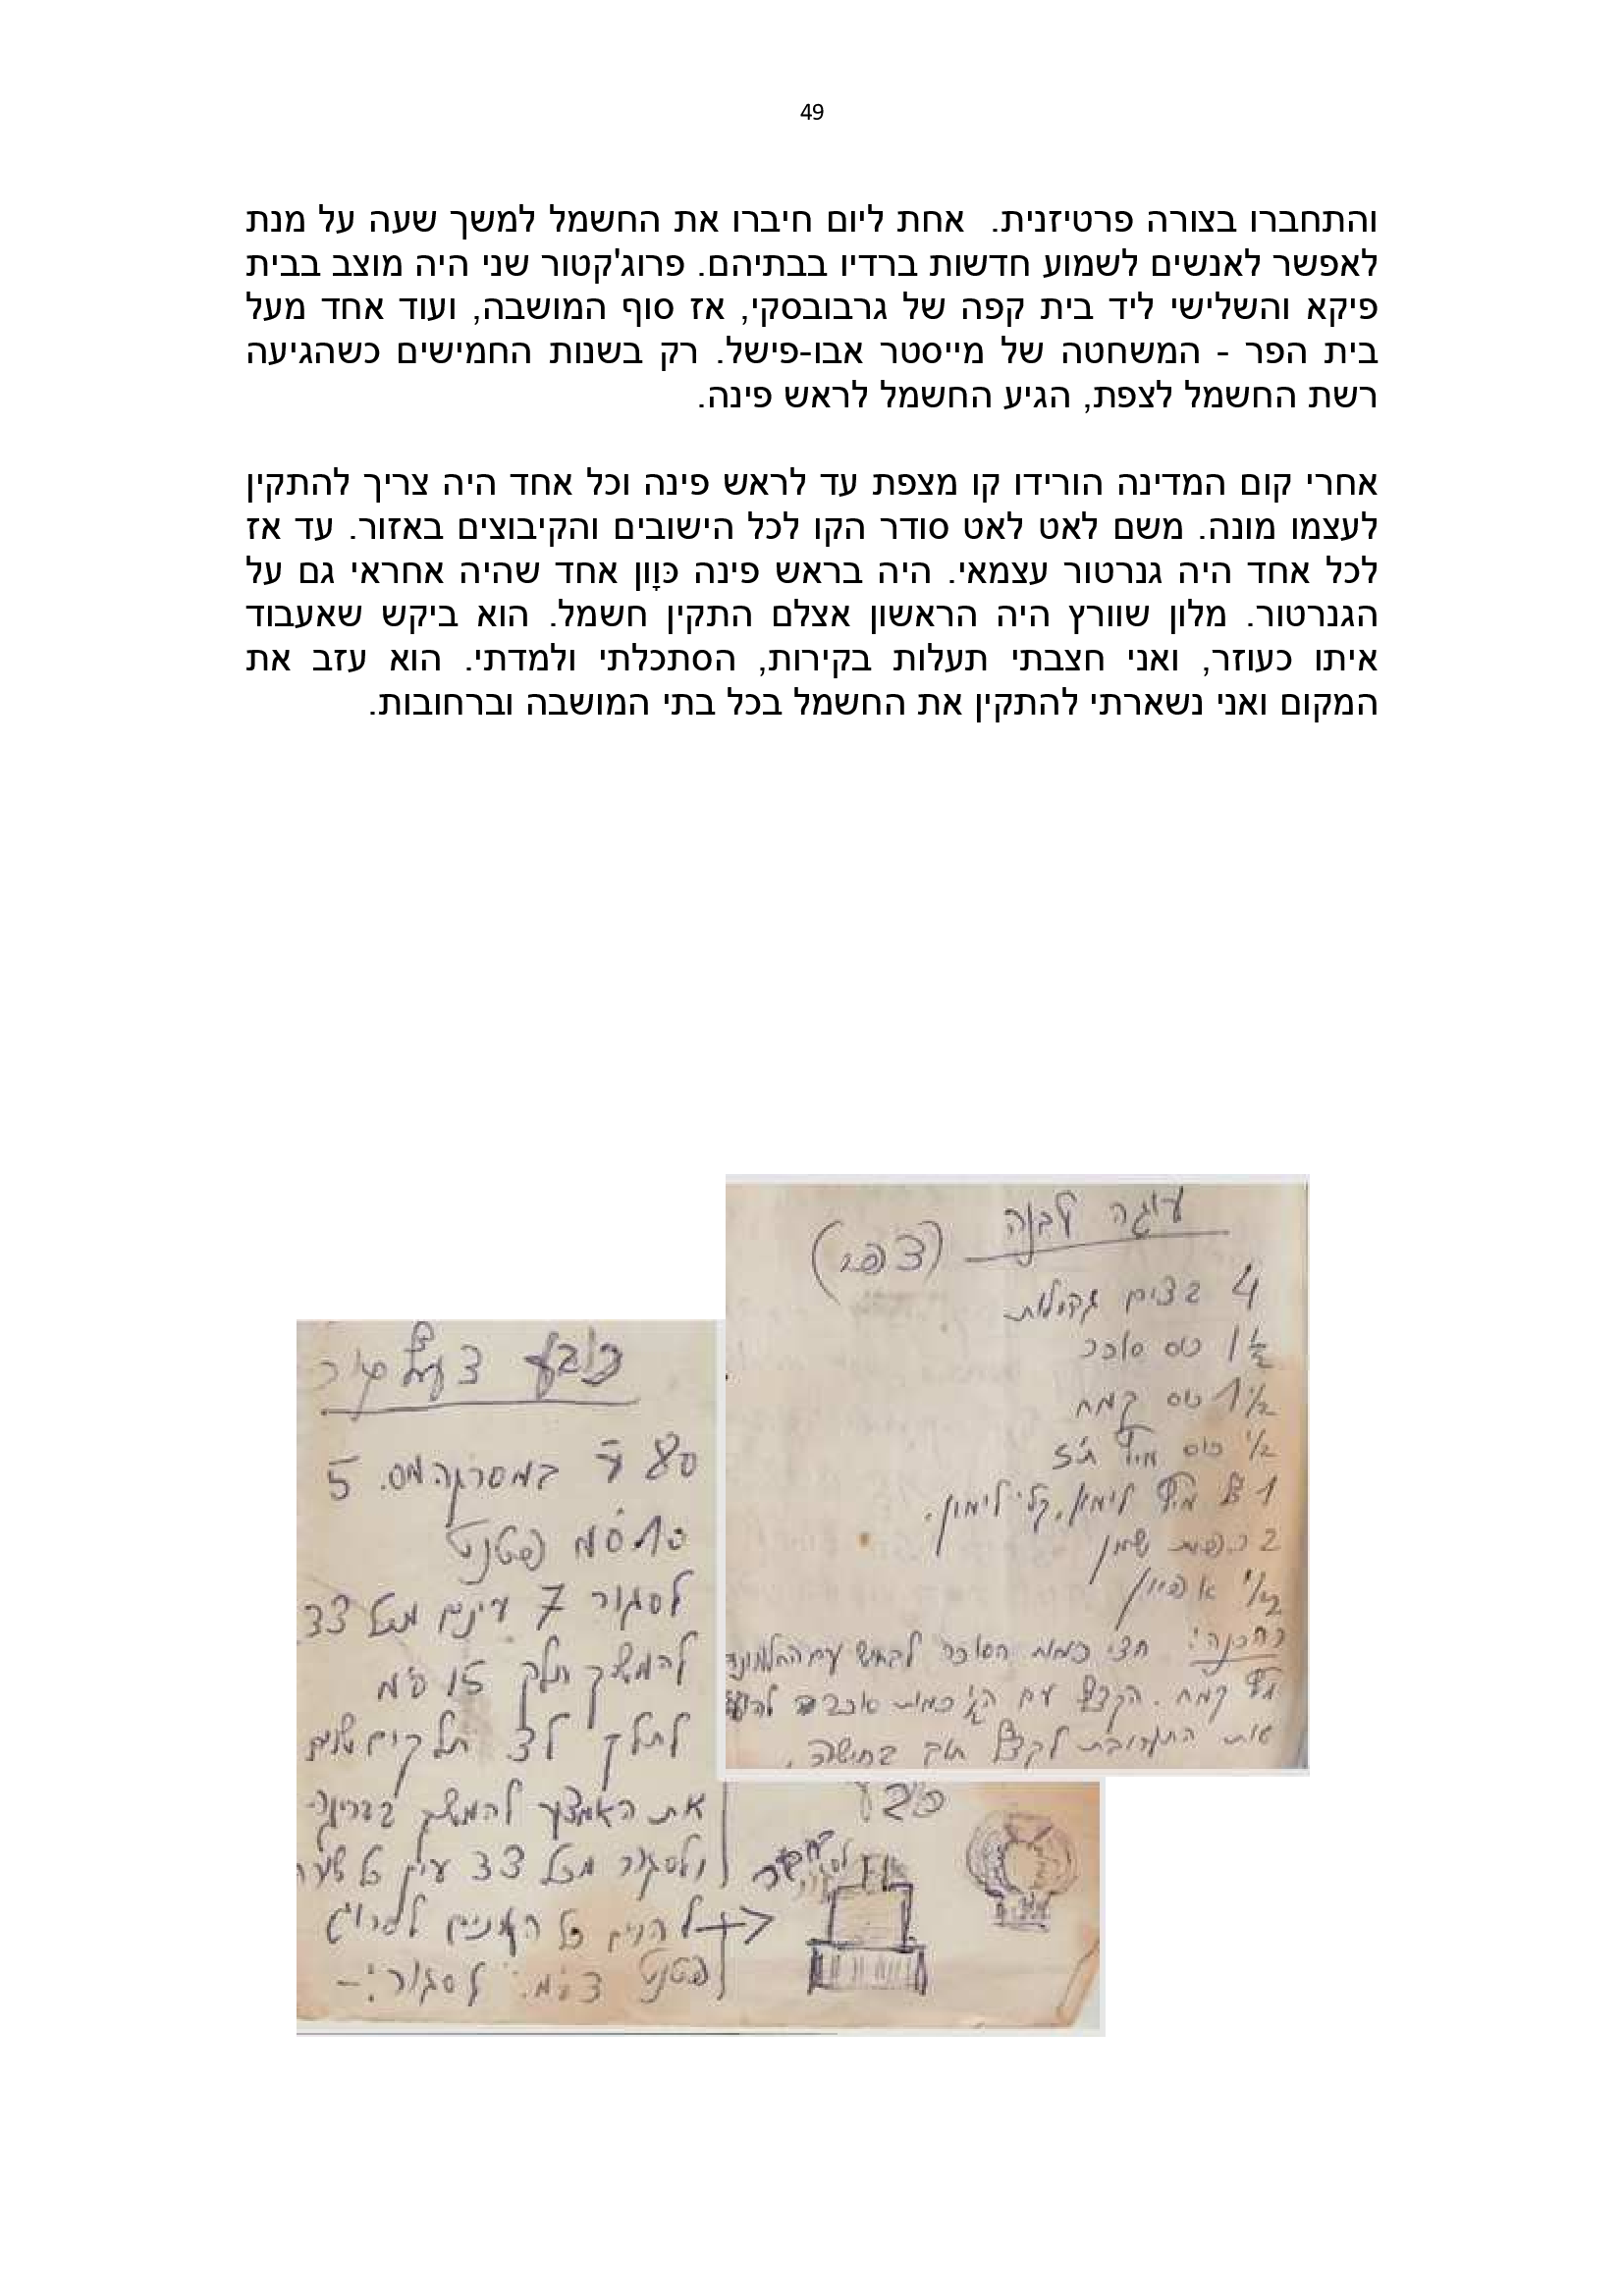 49
והתחברו בצורה פרטיזנית. אחת ליום חיברו את החשמל למשך שעה על מנת
לאפשר לאנשים לשמוע חדשות ברדיו בבתיהם. פרוג'קטור שני היה מוצב בבית
פיקא והשלישי ליד בית קפה של גרבובסקי, אז סוף המושבה, ועוד אחד מעל
בית הפר - המשחטה של מייסטר אבו-פישל. רק בשנות החמישים כשהגיעה
רשת החשמל לצפת, הגיע החשמל לראש פינה.
אחרי קום המדינה הורידו קו מצפת עד לראש פינה וכל אחד היה צריך להתקין
לעצמו מונה. משם לאט לאט סודר הקו לכל הישובים והקיבוצים באזור. עד אז
לכל אחד היה גנרטור עצמאי. היה בראש פינה כּוָון אחד שהיה אחראי גם על
הגנרטור. מלון שוורץ היה הראשון אצלם התקין חשמל. הוא ביקש שאעבוד
איתו כעוזר, ואני חצבתי תעלות בקירות, הסתכלתי ולמדתי. הוא עזב את
המקום ואני נשארתי להתקין את החשמל בכל בתי המושבה וברחובות.
עוגה לבנה
4 בצים
1½ כוס סוכר
1½ כוס קמח
½ כוס מיץ
1 מיץ לימון, קלי' לימון.
2 כפות שמן
הכנה: חצי כמות הסוכר
קמח. הקצף עם כמות סוכר
את התערובת לקצף תוך בחישה.
כובע
80 במסרגה מס. 5
פטנט
לסגור 7 עינים
להמשיך חלק 15 ס"מ
לחלק ל3 חלקים
את האמצע להמשיך
ולסגור מכל צד
להרים כל העינים לסרוג
פטנט לסגור:-
כובע